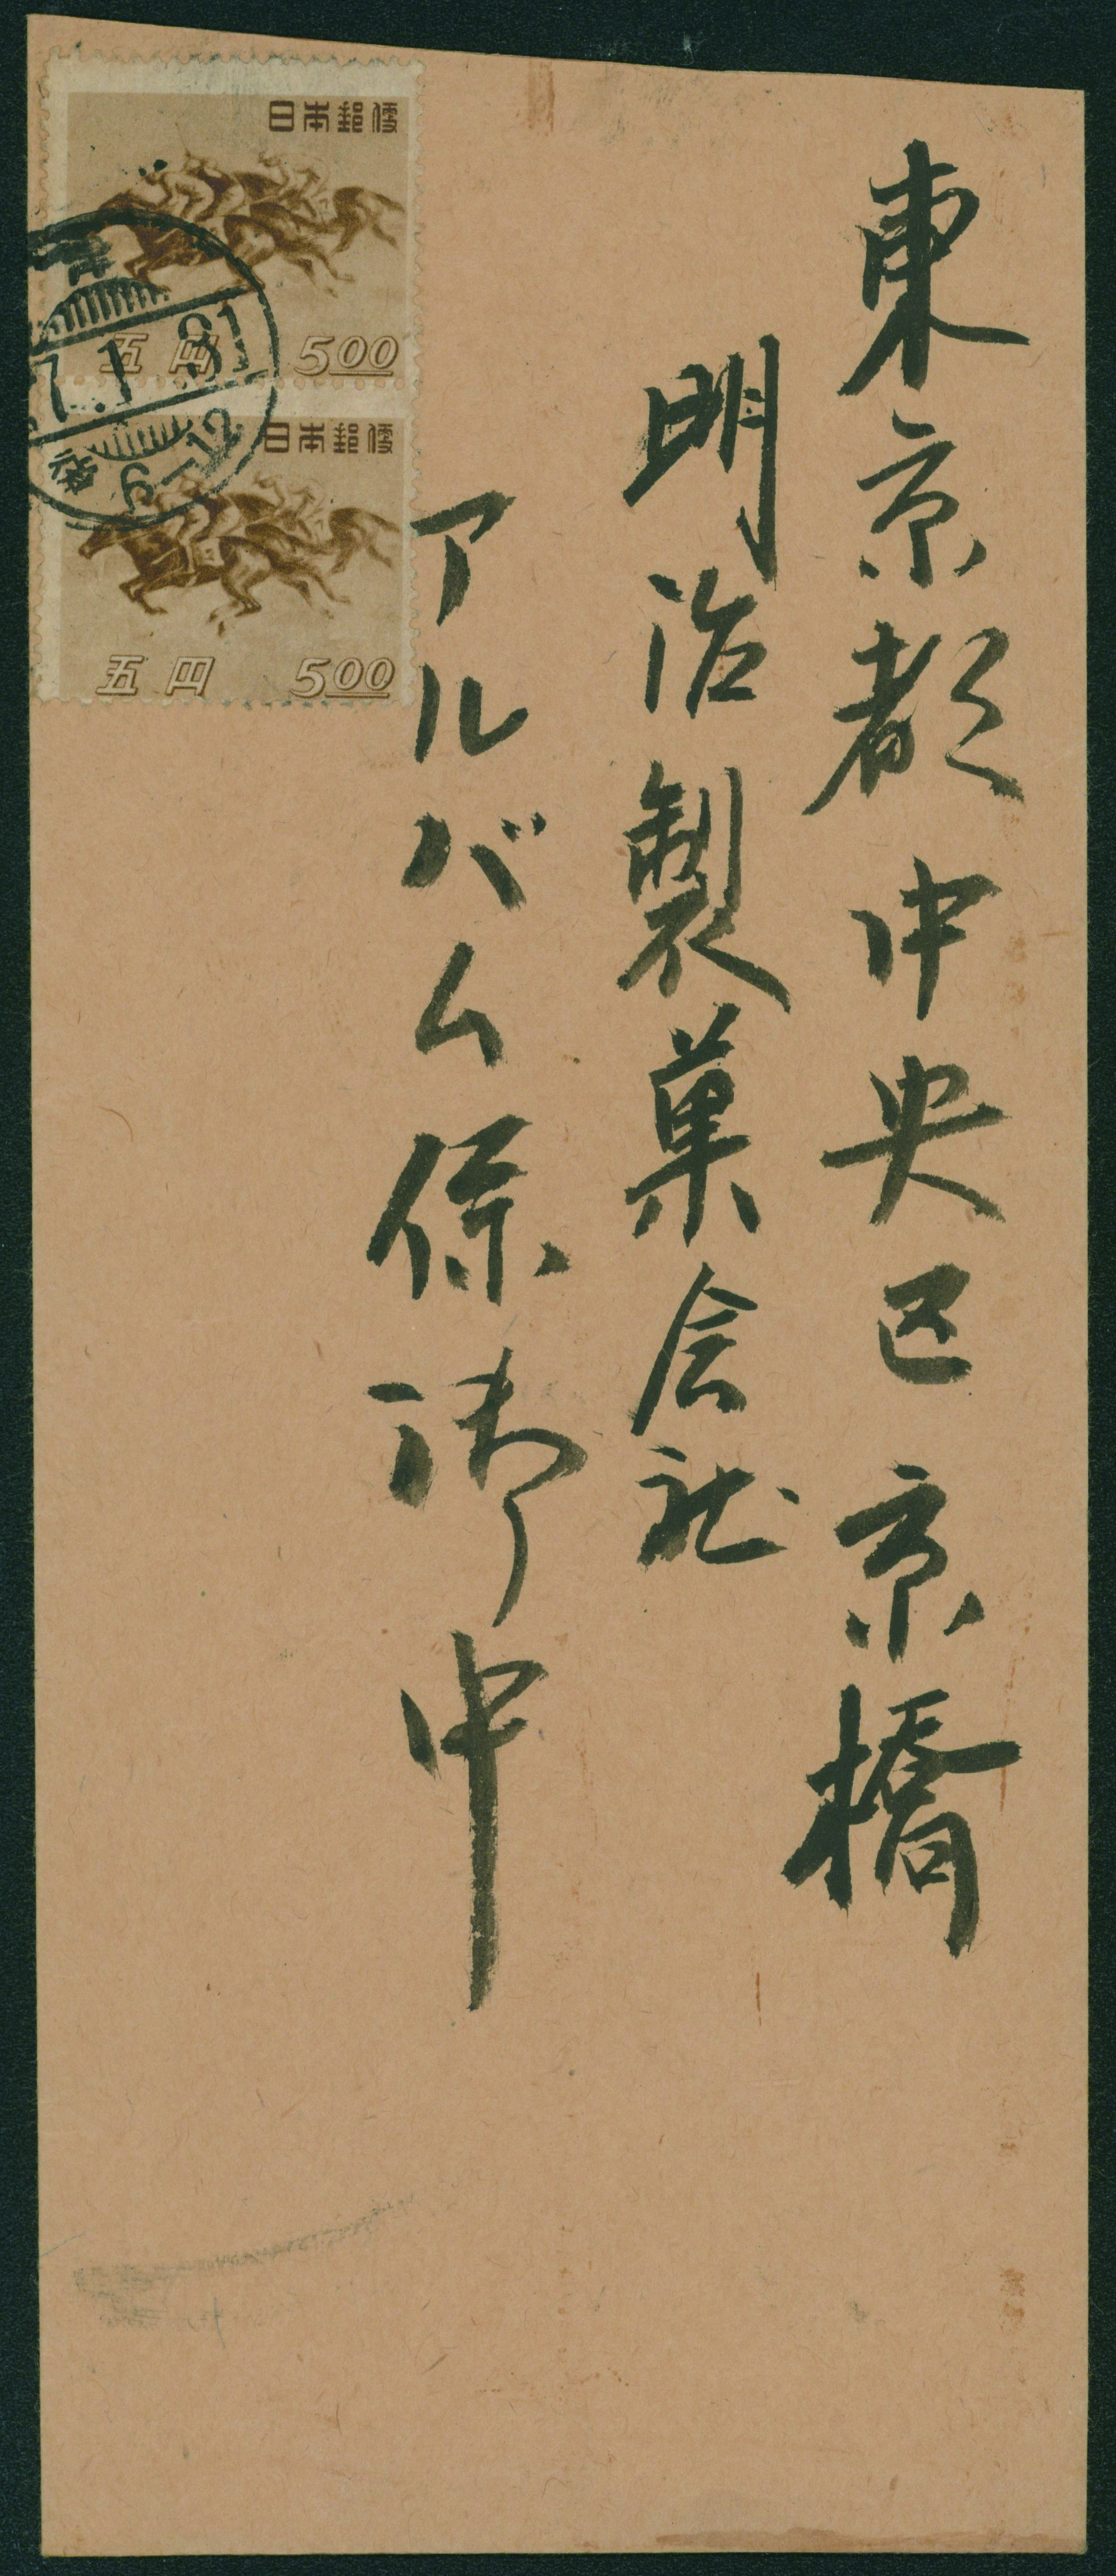 東京都中央区京橋
明治製菓会社
アルバム係御中
日本郵便
五円 500
日本郵便
五円 500
7.1.31
9-12